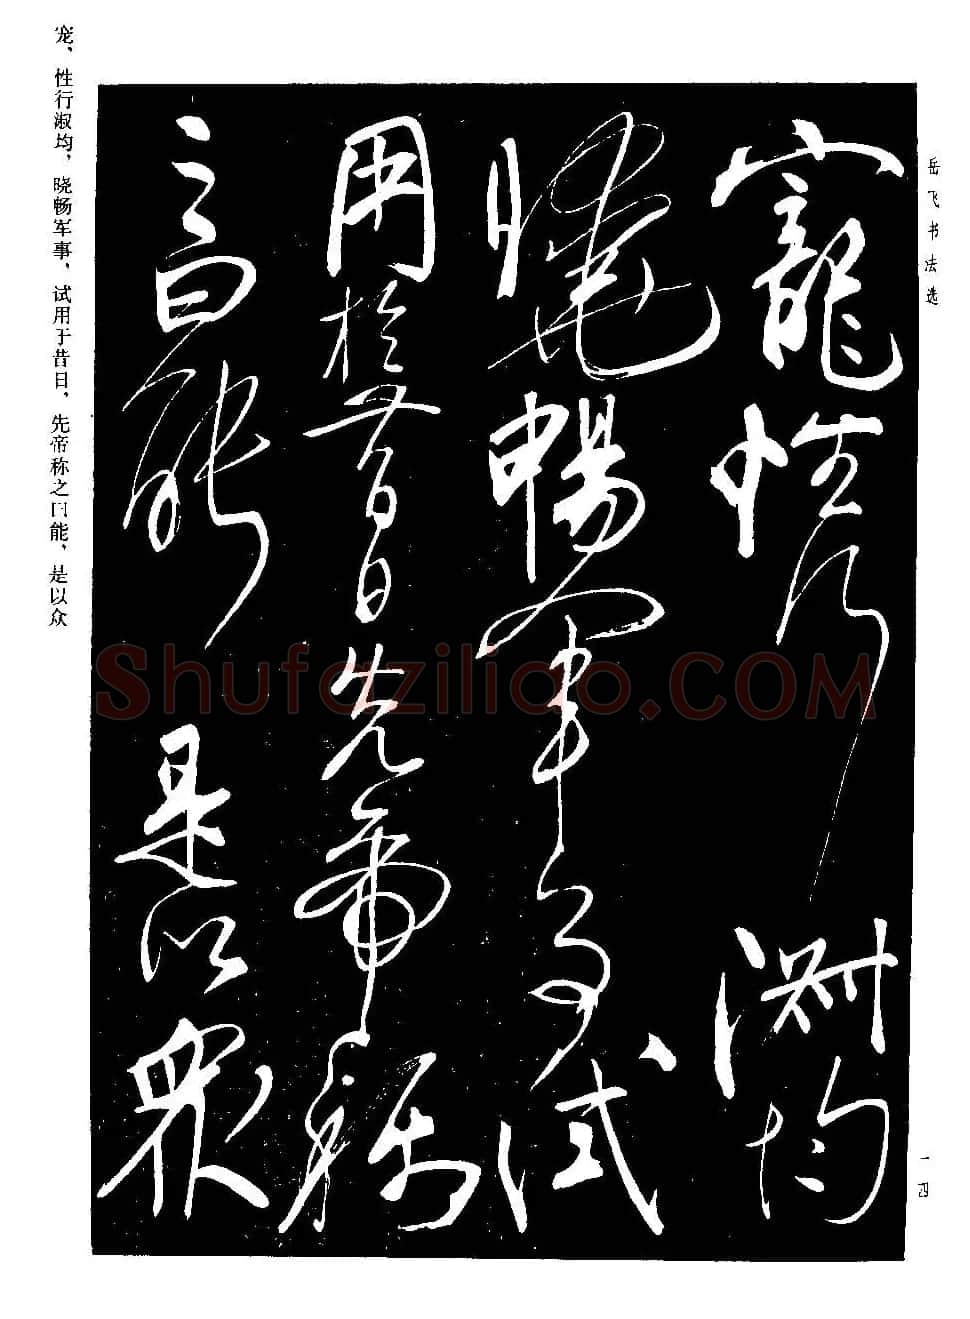 岳飞书法选
一四
寵性行淑均
曉暢軍事試
用於昔日先帝稱
之曰能是以眾
宠、性行淑均，晓畅军事、试用于昔日，先帝称之曰能、是以众
Shufaziliao.COM